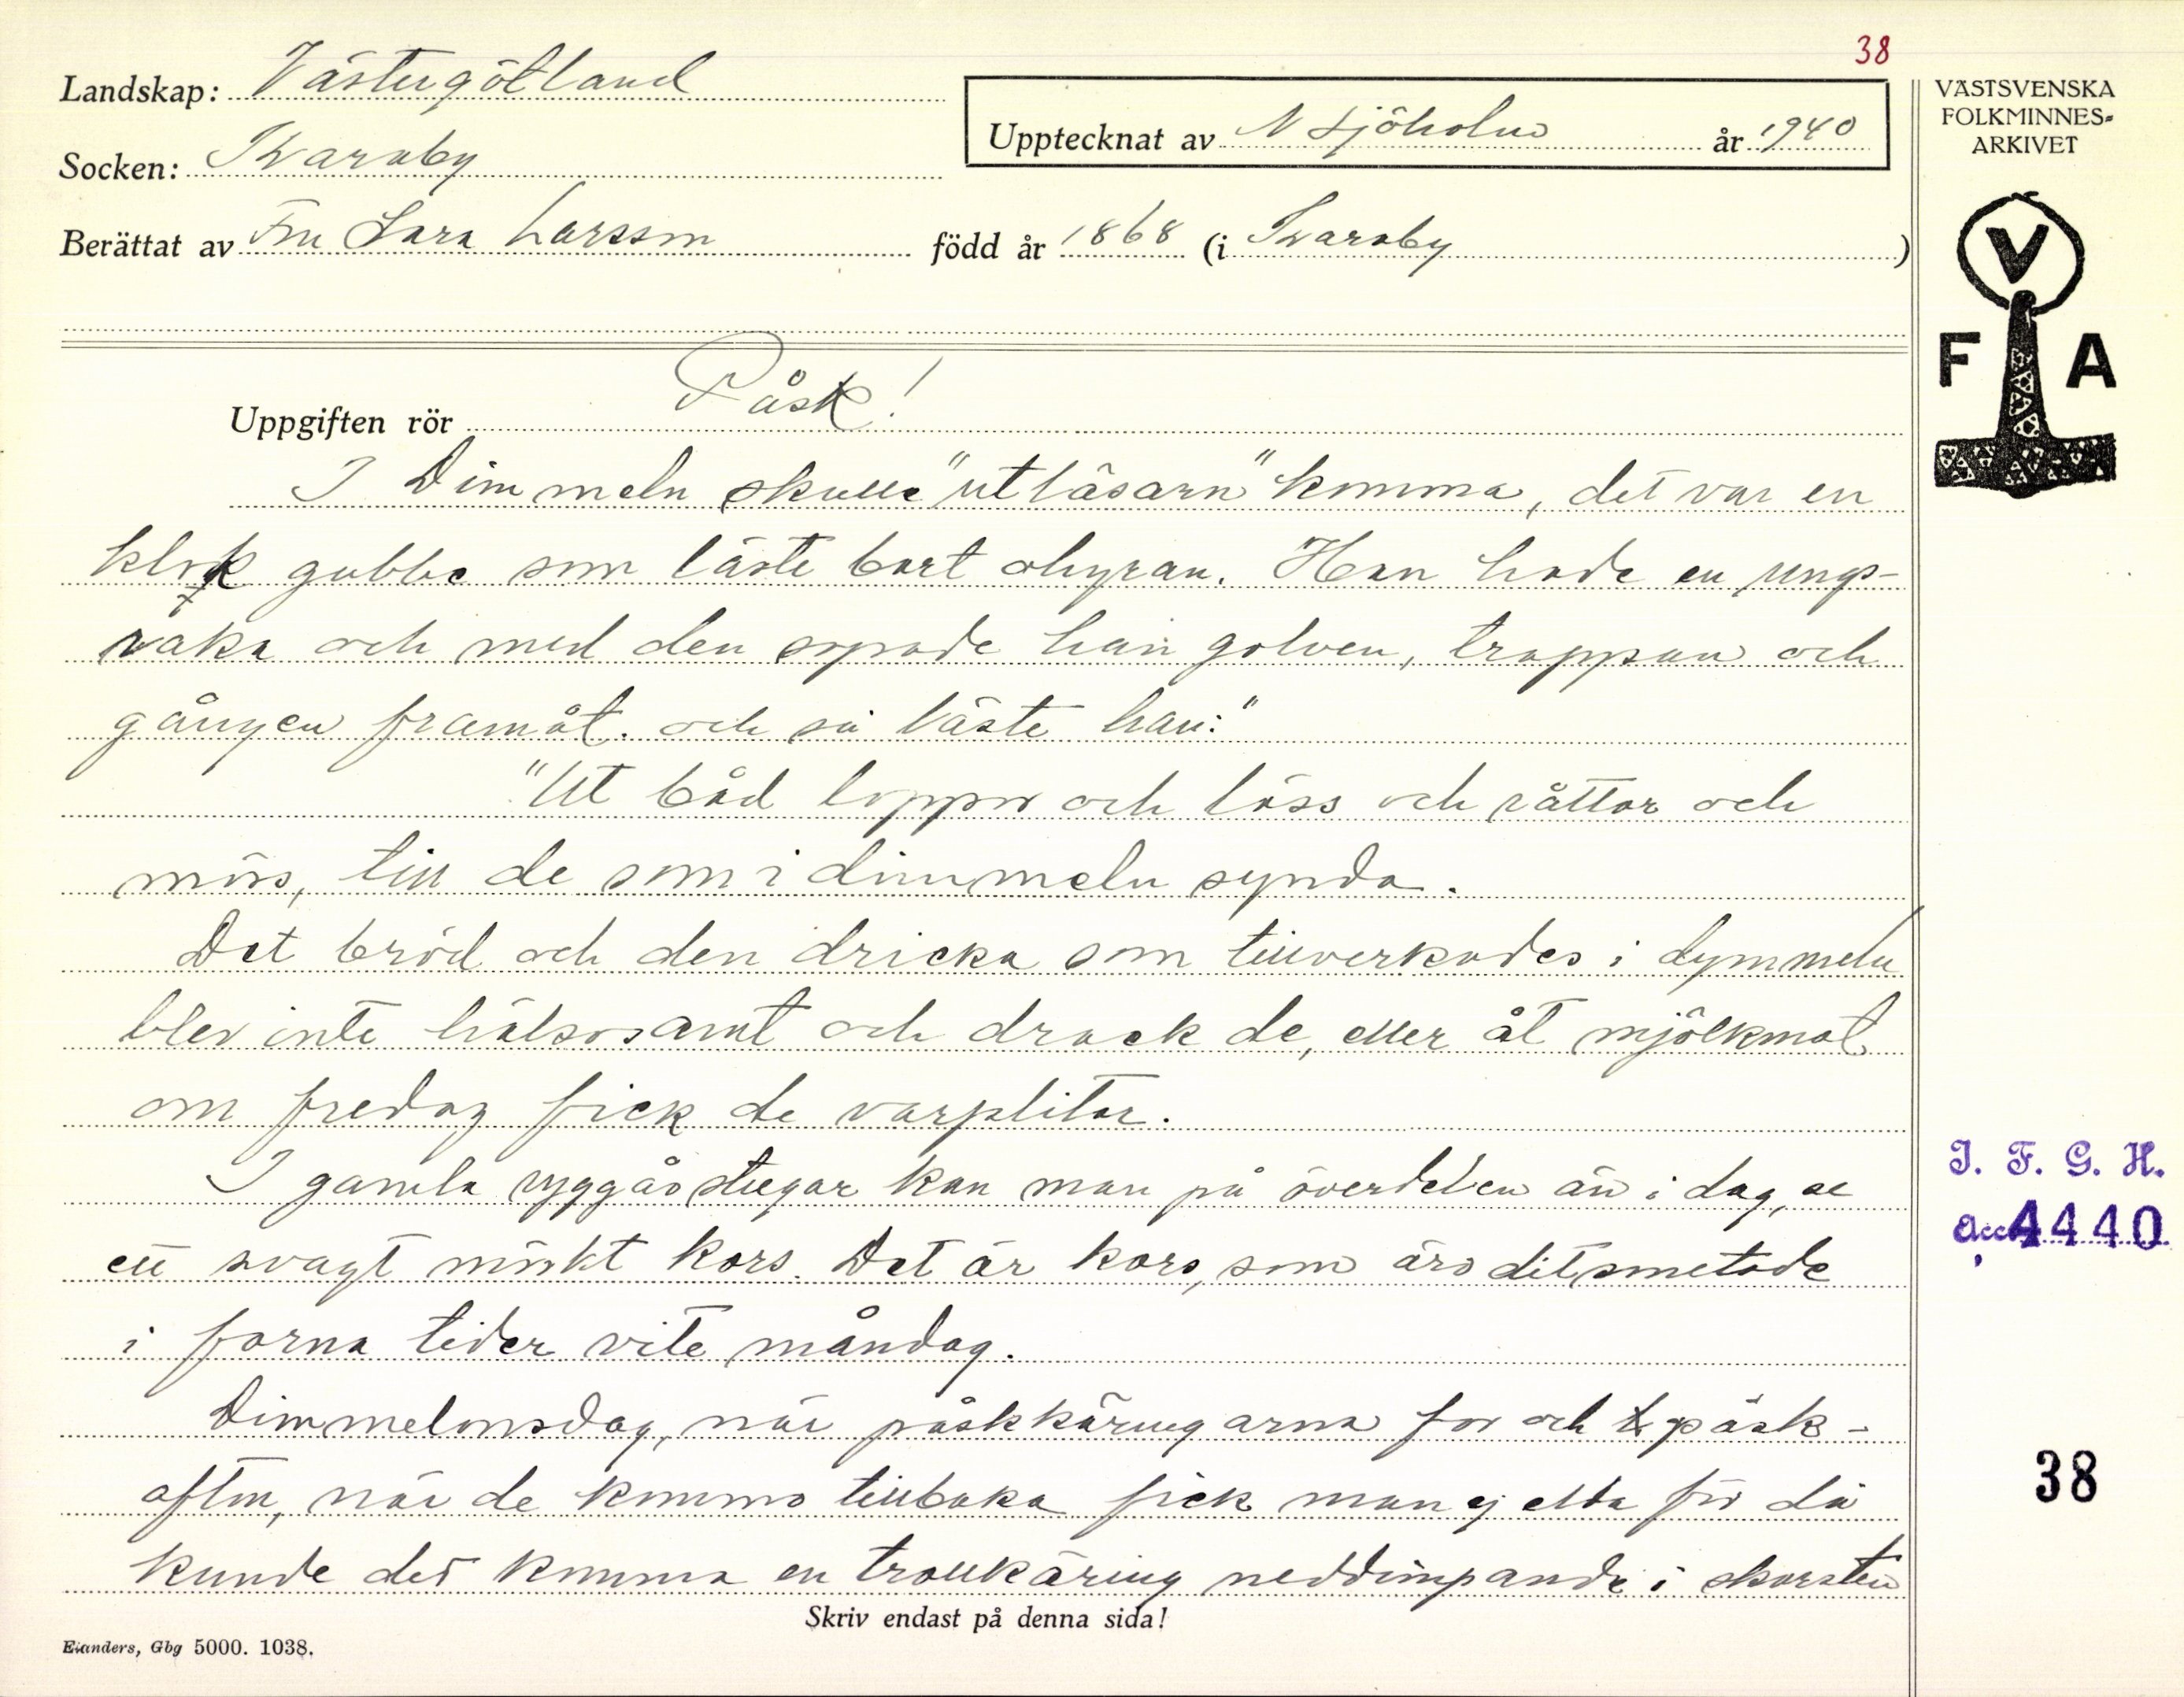 38
Landskap: Västergötland
Upptecknat av N Sjöholm år 1940
VÄSTSVENSKA
FOLKMINNES-
ARKIVET
Socken: Kvarnby
Berättat av Fru Sara Larsson född år 1868 (i Kvarnby)
V
F A
Uppgiften rör Påsk!
I Dimmeln skulle "utläsarn" komma, det var en
klok gubbe som läste bort ohyran. Han hade en ungs-
raka och med den sopade han golven, trappan och
gången framåt. och så läste han:"
"Ut båd loppor och löss och råttor och
möss, till de som i dimmeln synda.
Det bröd och den dricka som tillverkades i dymmeln
blev inte hälsosamt och drack de, eller åt mjölkmat
om fredag fick de varplitar.
I gamla ryggåsstugar kan man på överdelen än i dag, se
ett svagt mörkt kors. Det är kors, som äro ditsmetade
i forna tider vite måndag.
Dimmelonsdag, när påskkäringarna for och påsk-
afton, när de kommo tillbaka fick man ej elda för då
kunde det komma en trollkäring neddimpande i skorsten
Skriv endast på denna sida!
Elanders, Gbg 5000. 1038.
I. F. G. H.
Acc. 4440
38